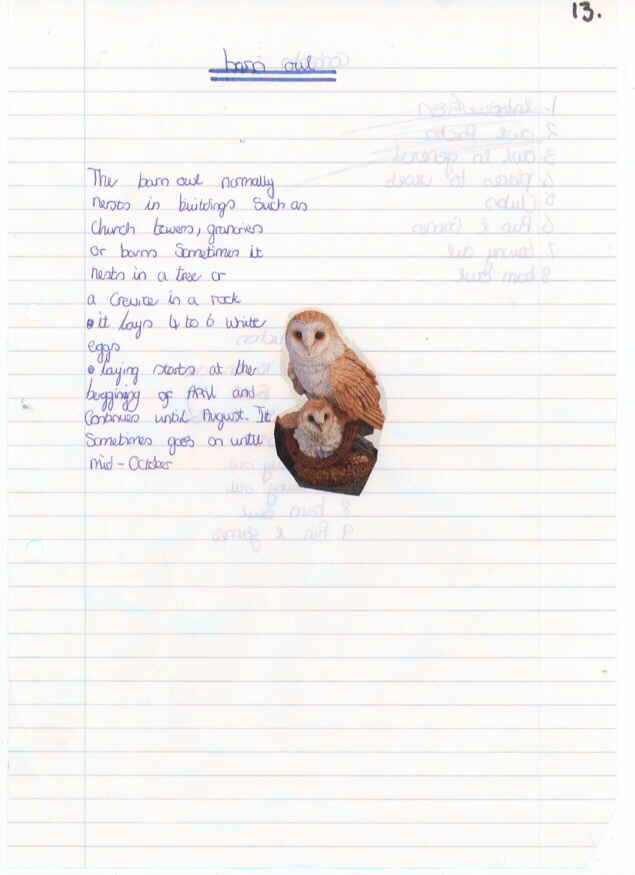 13.
barn owl
The barn owl normally
nests in buildings such as
church towers, granaries
or barns Sometimes it
nests in a tree or
a crevice in a rock
• it lays 4 to 6 white
eggs
• laying starts at the
beggining of April and
continues until August. It
Sometimes goes on until
mid-October